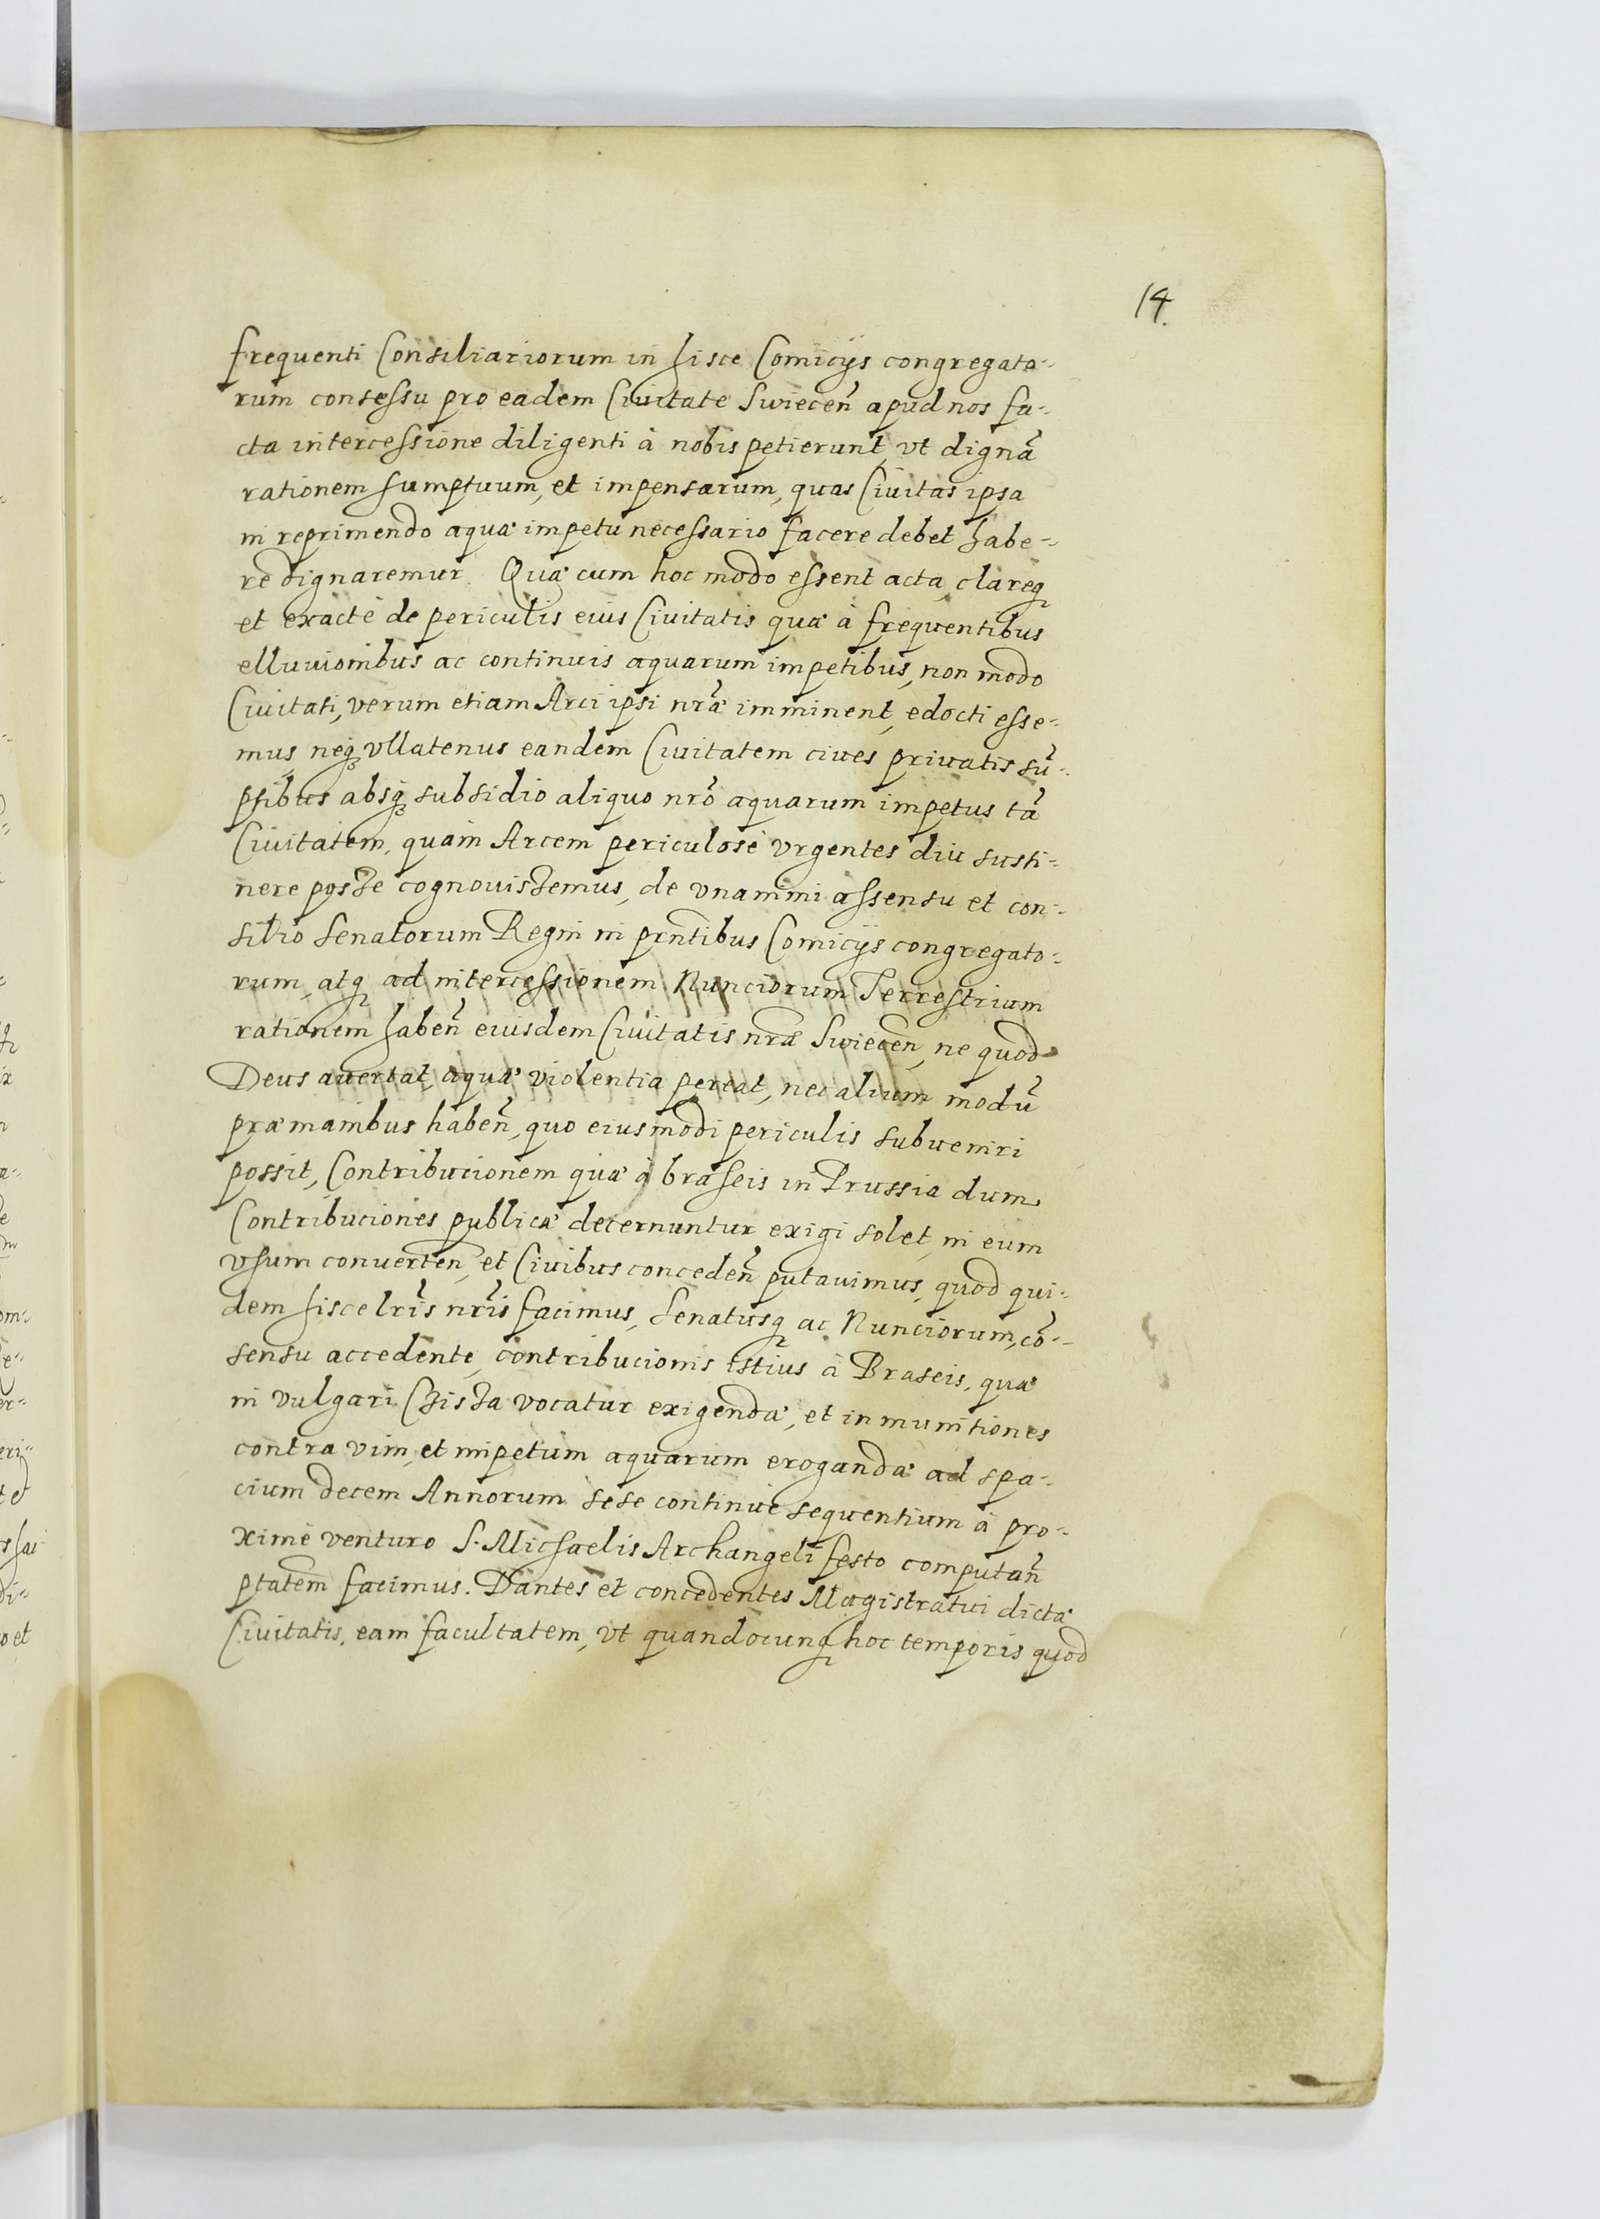 14.
frequenti Consiliariorum in hisce Comicijs congregato-
rum consessu pro eadem Ciuitate Swiecen̄ apud nos fa-
cta intercessione diligenti à nobis petierunt, vt dignā
rationem sumptuum, et impensarum, quas Ciuitas ipsa
in reprimendo aquæ impetu necessario facere debet habe-
re dignaremur. Quæ cum hoc modo essent acta, clareq
et exactè de periculis eius Ciuitatis quæ à frequentibus
elluuionibus ac continuis aquarum impetibus, non modo
Ciuitati, verum etiam Arci ipsi nrǣ imminent, edocti esse-
mus, neq vllatenus eandem Ciuitatem ciues priuatis sū-
ptibus absq subsidio aliquo nrō aquarum impetus tā
Ciuitatem, quàm Arcem periculosè vrgentes diu susti-
nere posse cognouissemus, de vnanimi assensu et con-
silio Senatorum Regni in prn̄tibus Comicijs congregato-
rum, atq ad intercessionem Nunciorum Terrestrium
rationem haben̄ eiusdem Ciuitatis nrǣ Swiecen̄, ne quod
Deus auertat, aquæ violentia pereat, nec alium modū
præ manibus haben̄, quo eiusmodi periculis subueniri
possit, Contribucionem quæ à braseis in Prussia dum
Contribuciones publicæ decernuntur exigi solet, in eum
vsum conuerten̄, et Ciuibus conceden̄ putauimus, quod qui-
dem hisce lrīs nrīs facimus, Senatusq ac Nunciorum, cō-
sensu accedente, contribucionis istius à Braseis, quæ
in vulgari Czissa vocatur exigendæ, et in munitiones
contra vim, et impetum aquarum erogandæ ad spa-
cium decem Annorum sese continuè sequentium à pro-
ximè venturo S. Michaelis Archangeli festo computan̄
ptatem̄ facimus. Dantes et concedentes Magistratui dictæ
Ciuitatis, eam facultatem, vt quandocunq hoc temporis quod